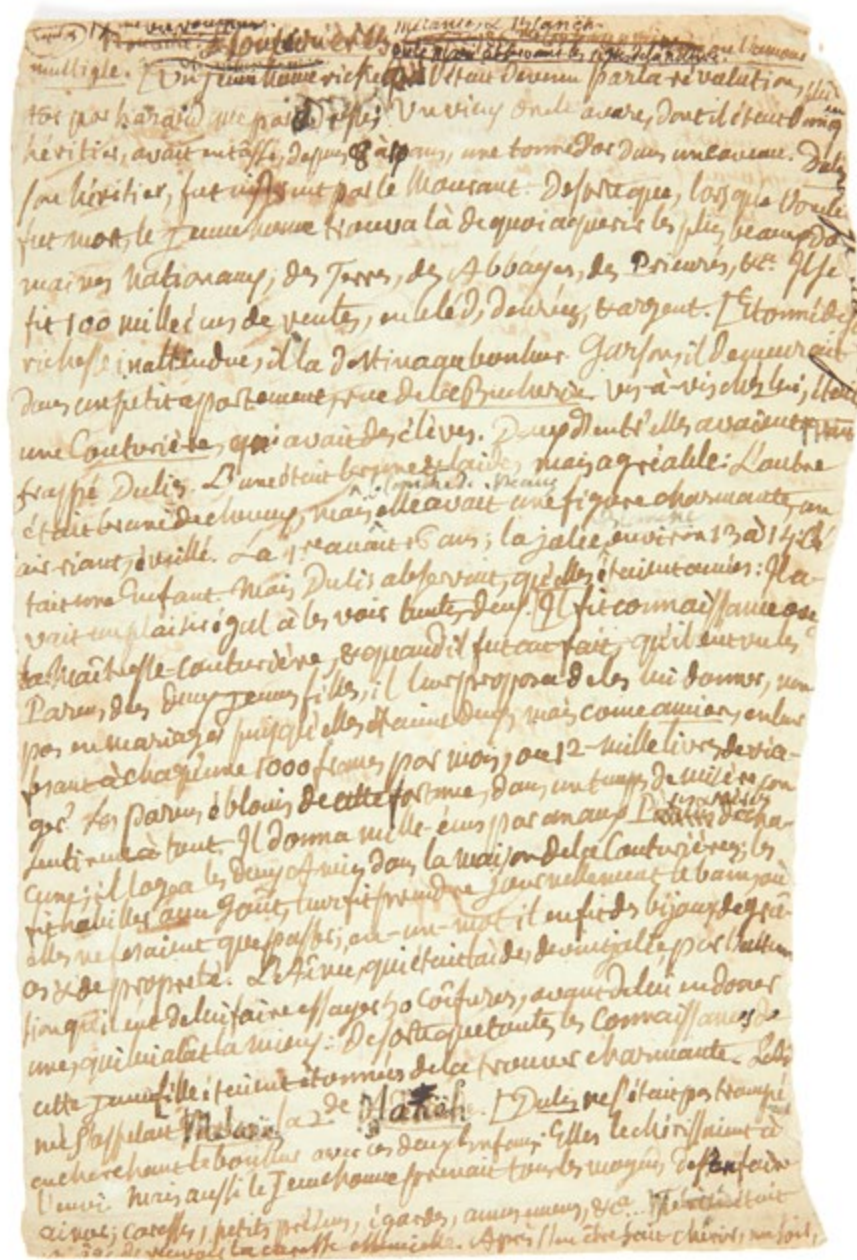 multiple. [Un jeune home riche
tôt par hazard que par Un vieux Oncle avare, dont il était l'uniq
héritier, avait entâssé, depuis ans, une tonne d'or dans un caveau. Dulis
son héritier, fut instruit par le Mourant. Desorteque, lorsque l'oncle
fut mort, le Jeune home trouva là de quoi aquerir les plus beaux Do-
maines Nationaux, des Terres, des Abbayes, des Prieurés, &c. Il se
fit 100 mille écus de rentes, en bled, denrées, & argent. [Etonné de sa
richesse inattendue, il la destina au bonheur. Garson, il demeurait
dans un petit appartement, rue de la Bucherie. Vis-à-vis chés lui, était
une Couturière, qui avait des élèves. Deux d'entr'elles avaient
frappé Dulis. L'une était brune & laide, mais agréable: L'autre
était brune de cheveux, mais elle avait une figure charmante, un
air riant, éveillé. La 1re avait 16 ans; la jolie, environ 13 à 14. C'é-
tait une Enfant. Mais Dulis observait, qu'elles étaient amies: Il a-
vait un plaisir égal à les voir toutes-deux. [Il fit connaissance avec
la Maîtresse-couturière, & quand il fut au fait, qu'il eut vu les
Parens des deux jeunes filles, il leur proposa de les lui donner, non
pas en mariage, puisqu'elles étaient deux, mais come amies, en leur
fesant à chaqu'une 1000 francs par mois, ou 12-mille livres de via-
ger. Les parens éblouis de cette fortune, dans un temps de misère, con-
sentirent à tout. Il donna mille-écus par an aux de cha-
cune; il logea les deux Amies dans la maison de la Couturière; les
fit habiller à son goût, leur fit prendre journellement le bain, où
elles ne fesaient que passer; en-un-mot il en fit des bijoux de grâ-
ces & de propreté. L'Aînée, qui était laide, devint jolie, par l'atten-
tion qu'il eut de lui faire essayer 30 coîfures, avant de lui en doner
une, qui lui alat la mieux: Desorteque toutes les Connaissances de
cette jeune fille étaient étonnées de la trouver charmante.
née s'appelait Melanie, la 2de Blanch. [Dulis ne s'était pas trompé
en cherchant le bonheur avec ces deux Enfans. Elles le chérissaient à
l'envi. Mais aussi le Jeune home prenait tous les moyens de s'en faire
aimer; caresses, petits présens, égards, amusemens, &c.
la caresse Après s'en être fait chérir,